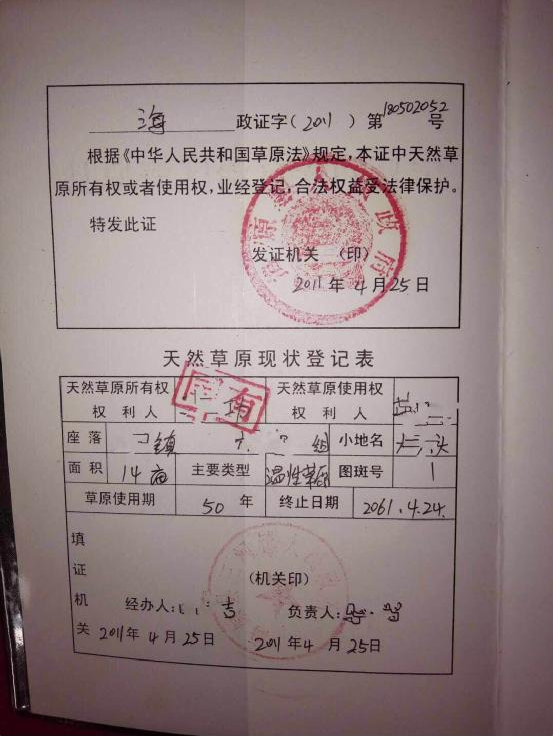 海 政证字（2011）第180502052号
根据《中华人民共和国草原法》规定，本证中天然草
原所有权或者使用权，业经登记，合法权益受法律保护。
特发此证
发证机关 （印）
2011年4月25日
天然草原现状登记表
天然草原所有权权利人 国有 天然草原使用权权利人
座落 镇 组 小地名 头
面积 14亩 主要类型 温性草原 图斑号 1
草原使用期 50年 终止日期 2061.4.24.
填证机关
（机关印）
经办人： 吉 负责人：
2011年4月25日 2011年4月25日